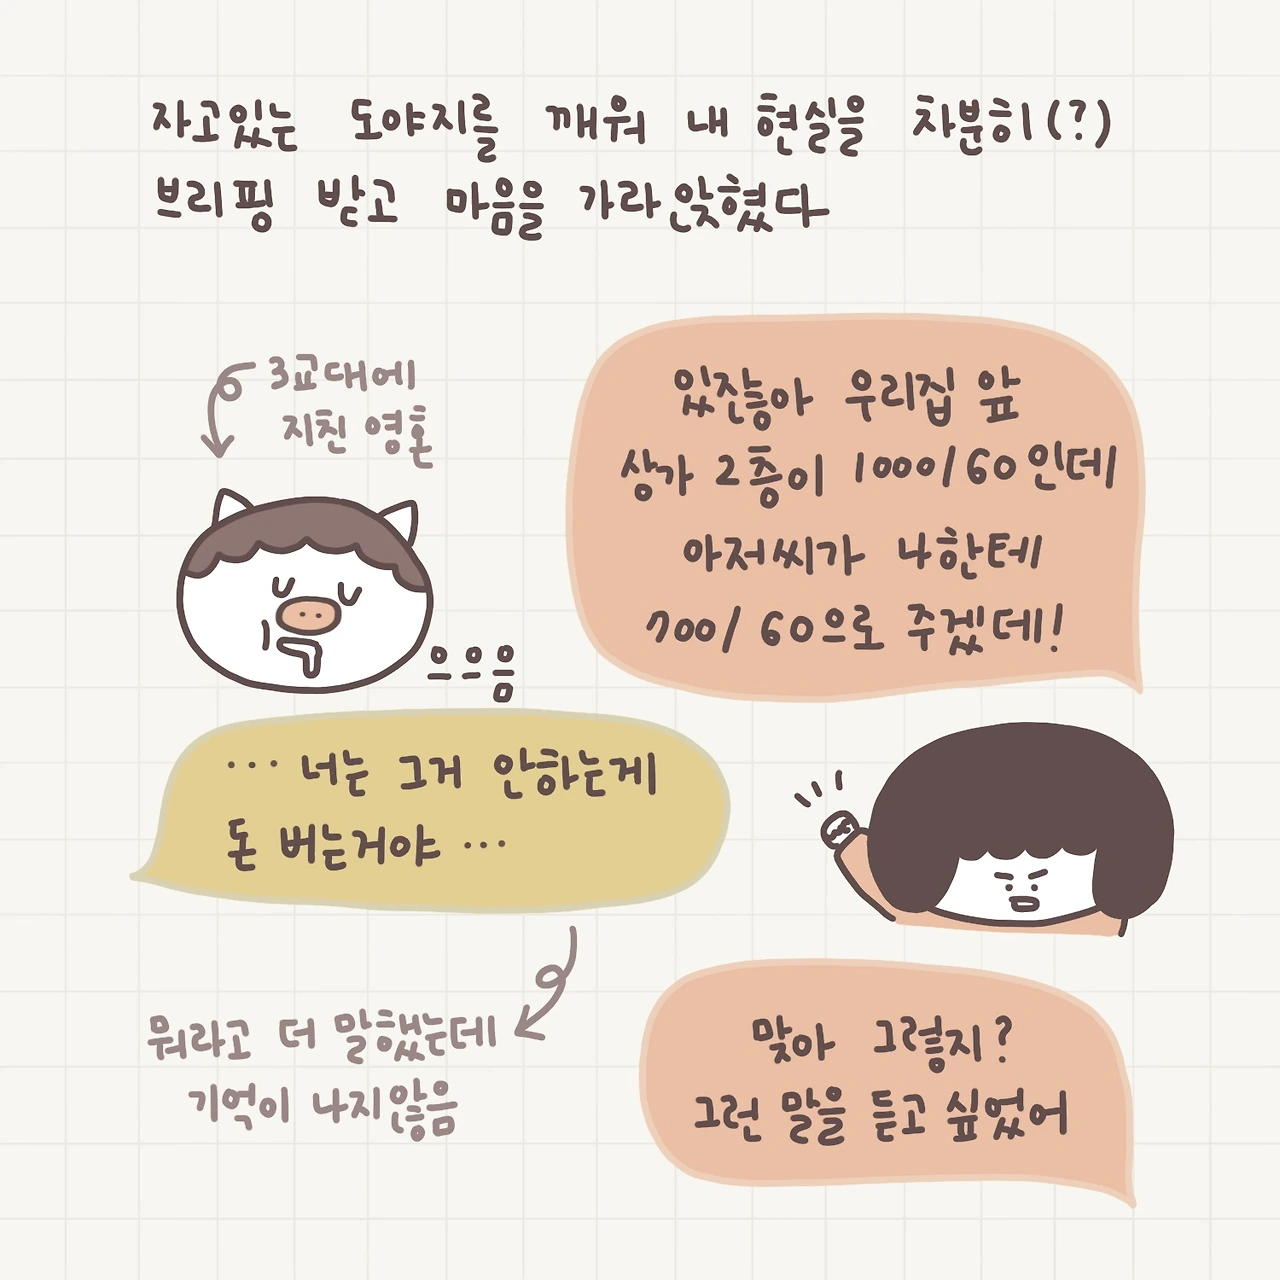 자고있는 도야지를 깨워 내 현실을 차분히(?)
브리핑 받고 마음을 가라앉혔다
3교대에
지친 영혼
있잖아 우리집 앞
상가 2층이 1000/60인데
아저씨가 나한테
700/60으로 주겠데!
으으음
… 너는 그거 안하는게
돈 버는거야 …
뭐라고 더 말했는데
기억이 나지않음
맞아 그렇지?
그런 말을 듣고 싶었어